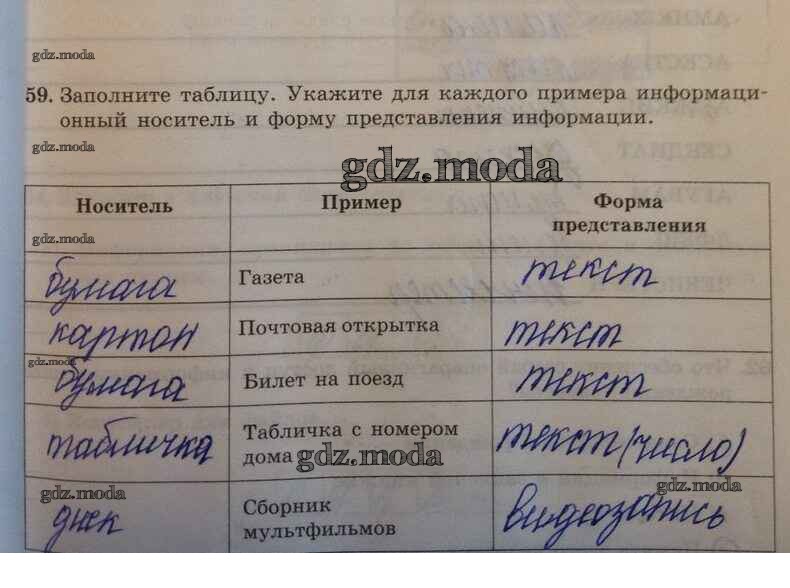 gdz.moda
59. Заполните таблицу. Укажите для каждого примера информаци-
онный носитель и форму представления информации.
gdz.moda
gdz.moda
Носитель Пример Форма
представления
gdz.moda
бумага Газета текст
картон Почтовая открытка текст
gdz.moda
бумага Билет на поезд текст
табличка Табличка с номером текст (число)
дома gdz.moda
gdz.moda gdz.moda
диск Сборник видеозапись
мультфильмов